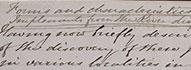 Forms and characteristics
Implements from the River
Having now briefly descri
of the discovery of these
in various localities in